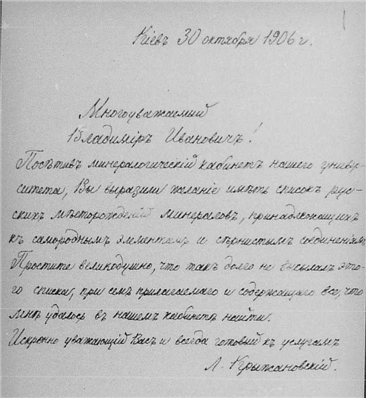 Кіевъ 30 октября 1906 г.
Многоуважаемый
Владиміръ Ивановичъ!
Посѣтивъ минералогическій кабинетъ нашего универ-
ситета, Вы выразили желаніе имѣть списокъ рус-
скихъ мѣсторожденій минераловъ, принадлежащихъ
къ самороднымъ элементамъ и сѣрнистымъ соединеніямъ.
Простите великодушно, что такъ долго не высылалъ это-
го списка, при семъ прилагаемаго и содержащаго все, что
мнѣ удалось въ нашемъ кабинетѣ найти.
Искренно уважающій Васъ и всегда готовый къ услугамъ
Л. Крыжановскій.